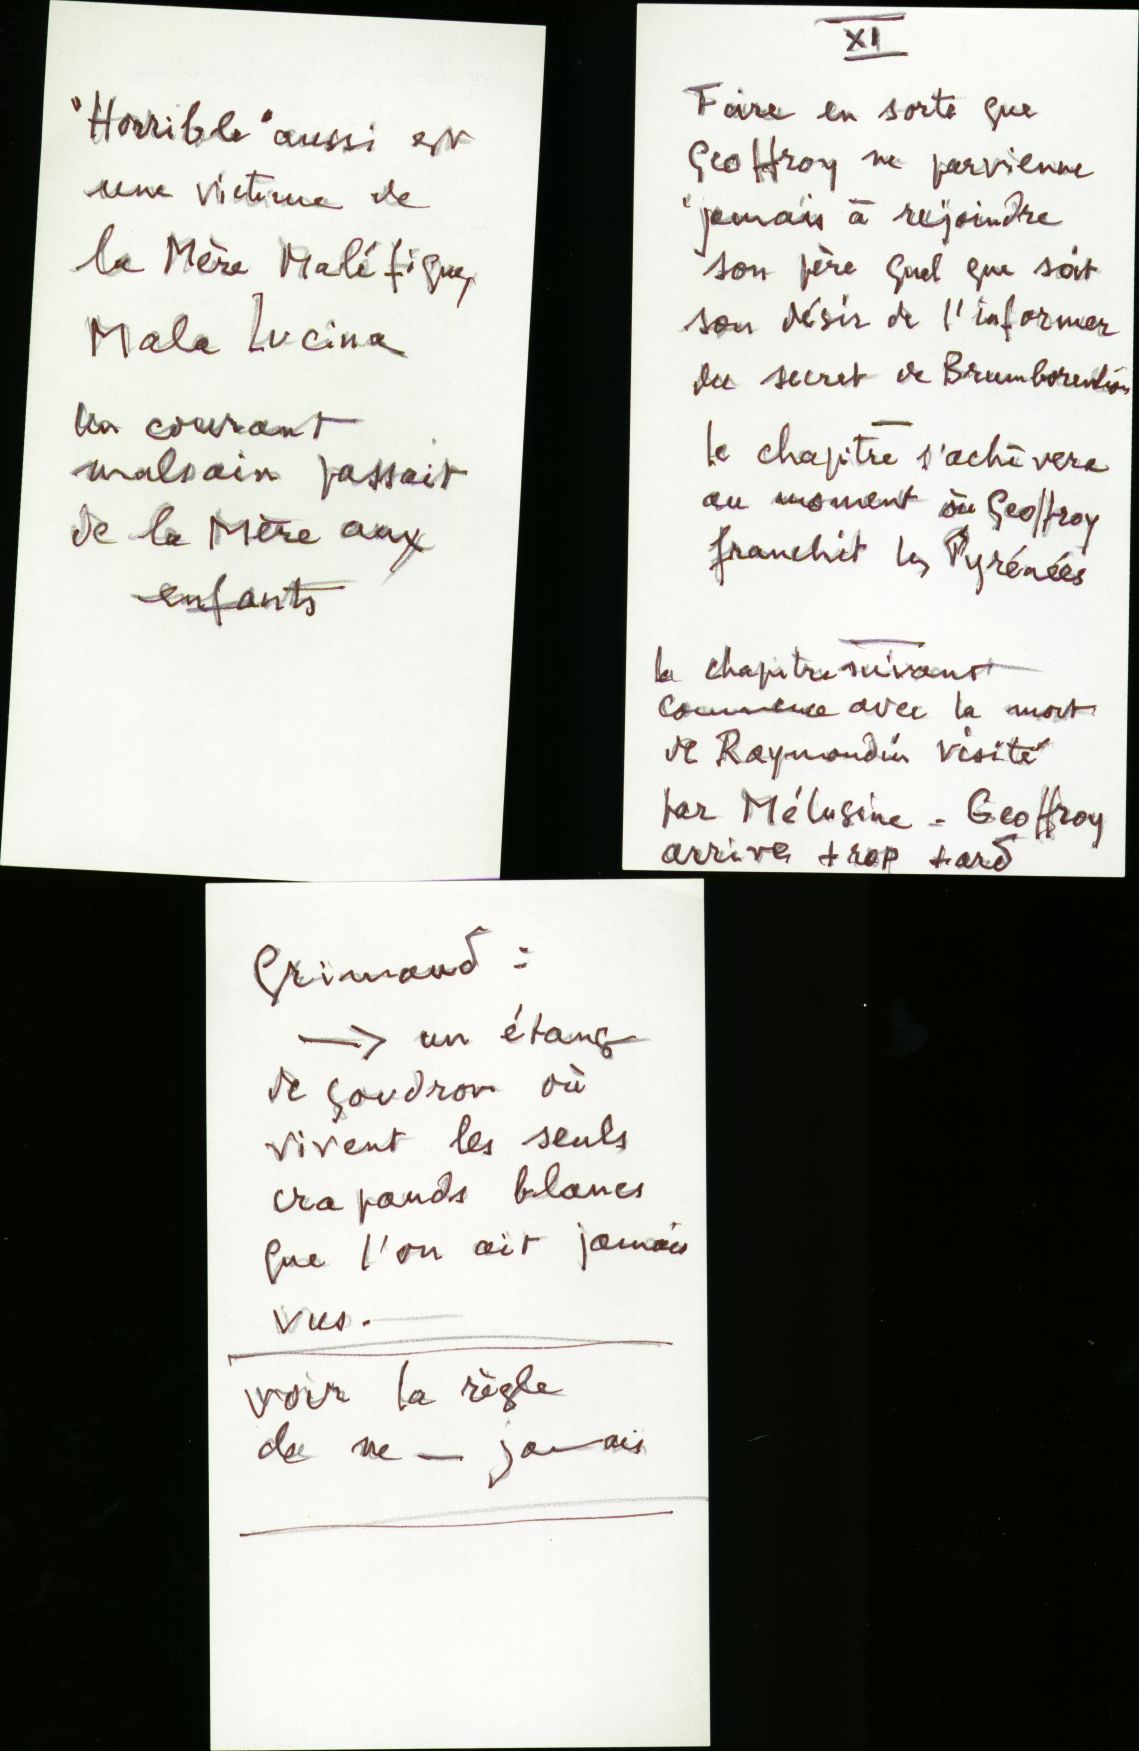 "Horrible" aussi est
une victime de
la Mère Maléfique,
Mala Lucina
Un courant
malsain passait
de la Mère aux
enfants
XI
Faire en sorte que
Geoffroy ne parvienne
jamais à rejoindre
son père quel que soit
son désir de l'informer
du secret de
le chapitre s'achèvera
au moment où Geoffroy
franchit les Pyrénées
le chapitre suivant
commence avec la mort
de Raymondin visité
par Mélusine - Geoffroy
arrive trop tard
Grimaud :
→ un étang
de goudron où
vivent les seuls
crapauds blancs
que l'on ait jamais
vus.
voir la règle
de ne — jamais